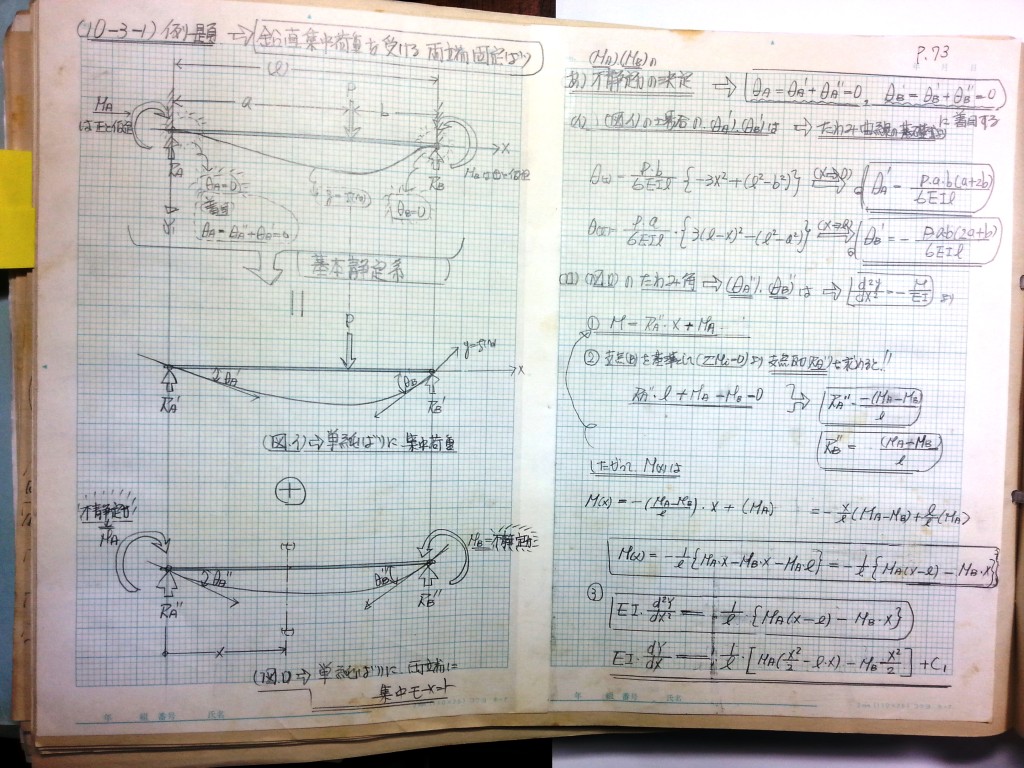 (10-3-1) 例題 ⇒ 鉛直集中荷重を受ける両端固定ばり
l
a
P
b
MA
は正と仮定
x
RA
RB
θA=0
着目
θA=θA'+θA''=0
θB=0
y
基本静定系
P
y=f(x)
x
θA'
θB'
RA'
RB'
(図.イ)⇒単純ばりに集中荷重
不静定力
MA
MB=不静定力
θA''
θB''
RA''
RB''
x
(図.ロ)⇒単純ばりに両端に
集中モーメント
年 組 番号 氏名
P.73
(MA)(MB)の
あ) 不静定力の決定 ⇒ θA=θA'+θA''=0, θB=θB'+θB''=0
に着目する
(イ) (図イ)の場合の, θA', θB'は ⇒ たわみ曲線の
θ(x) = P.b/6EIl {-3x²+(l²-b²)} (x→0) θA' = P.a.b(a+2b)/6EIl
θ(x) = P.a/6EIl . {3(l-x)²-(l²-a²)} (x→l) θB' = - P.ab(2a+b)/6EIl
(ロ) (図ロ)のたわみ角 ⇒ (θA''), (θB'')は ⇒ d²y/dx² = - M/EI より
① M = RA''・x + MA
② 支点(B)を基準に(ΣMB=0)より支点反力RA''を求めると!!
RA''・l + MA - MB = 0 RA'' = -(MA-MB)/l
RB'' = (MA+MB)/l
したがって M(x)は
M(x) = -(MA-MB/l)・x + (MA) = - x/l (MA-MB) + l/l (MA)
M(x) = - 1/l {MA・x - MB・x - MA・l} = - 1/l {MA(x-l) - MB・x}
③ EI・d²y/dx² = - 1/l {MA(x-l) - MB・x}
EI・dy/dx = 1/l [MA(x²/2 - l・x) - MB・x²/2] + C₁
年 組 番号 氏名